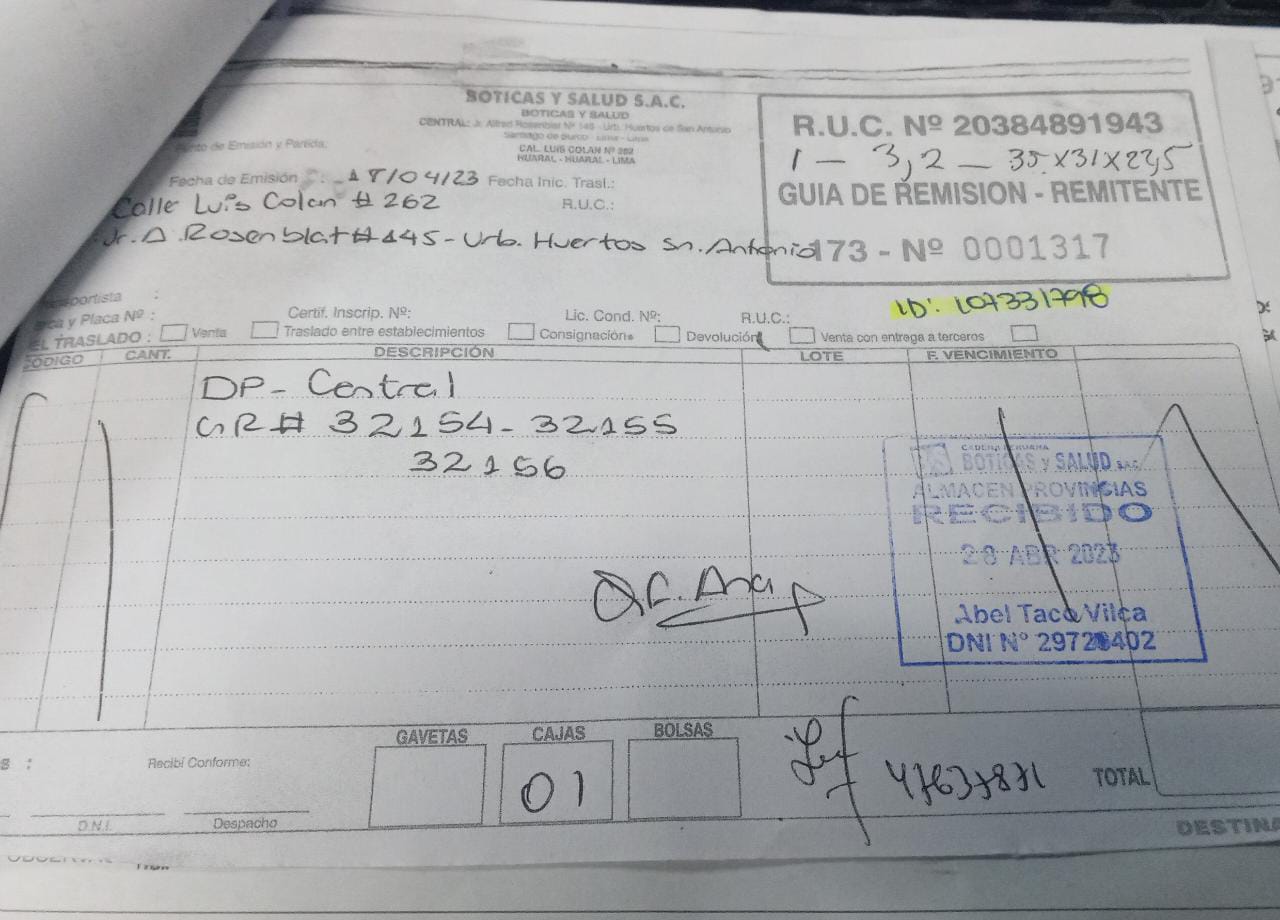 BOTICAS Y SALUD S.A.C.
BOTICAS Y SALUD
CENTRAL: Jr. Alfred Rosenblat Nº 145 - Urb. Huertos de San Antonio
Santiago de Surco - Lima - Lima
CAL. LUIS COLAN Nº 262
HUARAL - HUARAL - LIMA
R.U.C. Nº 20384891943
1 - 3,2 - 35x31x23,5
GUIA DE REMISION - REMITENTE
173 - Nº 0001317
Punto de Emisión y Partida:
Fecha de Emisión : 18/04/23 Fecha Inic. Trasl.:
Calle Luis Colan # 262 R.U.C.:
Jr. A. Rosenblat # 145 - Urb. Huertos Sn. Antonio
ID: 107331798
Certif. Inscrip. Nº: Lic. Cond. Nº: R.U.C.:
y Placa Nº :
EL TRASLADO : Venta Traslado entre establecimientos Consignación Devolución Venta con entrega a terceros
CÓDIGO CANT. DESCRIPCIÓN LOTE F. VENCIMIENTO
DP - Central
GR # 32154 - 32155
32156
CADENA PERUANA
BOTICAS y SALUD S.A.C.
ALMACEN PROVINCIAS
RECIBIDO
28 ABR 2023
Abel Taco Vilca
DNI N°
Q.F. Ana
GAVETAS CAJAS BOLSAS
01
47637871
TOTAL
Recibí Conforme:
D.N.I. Despacho